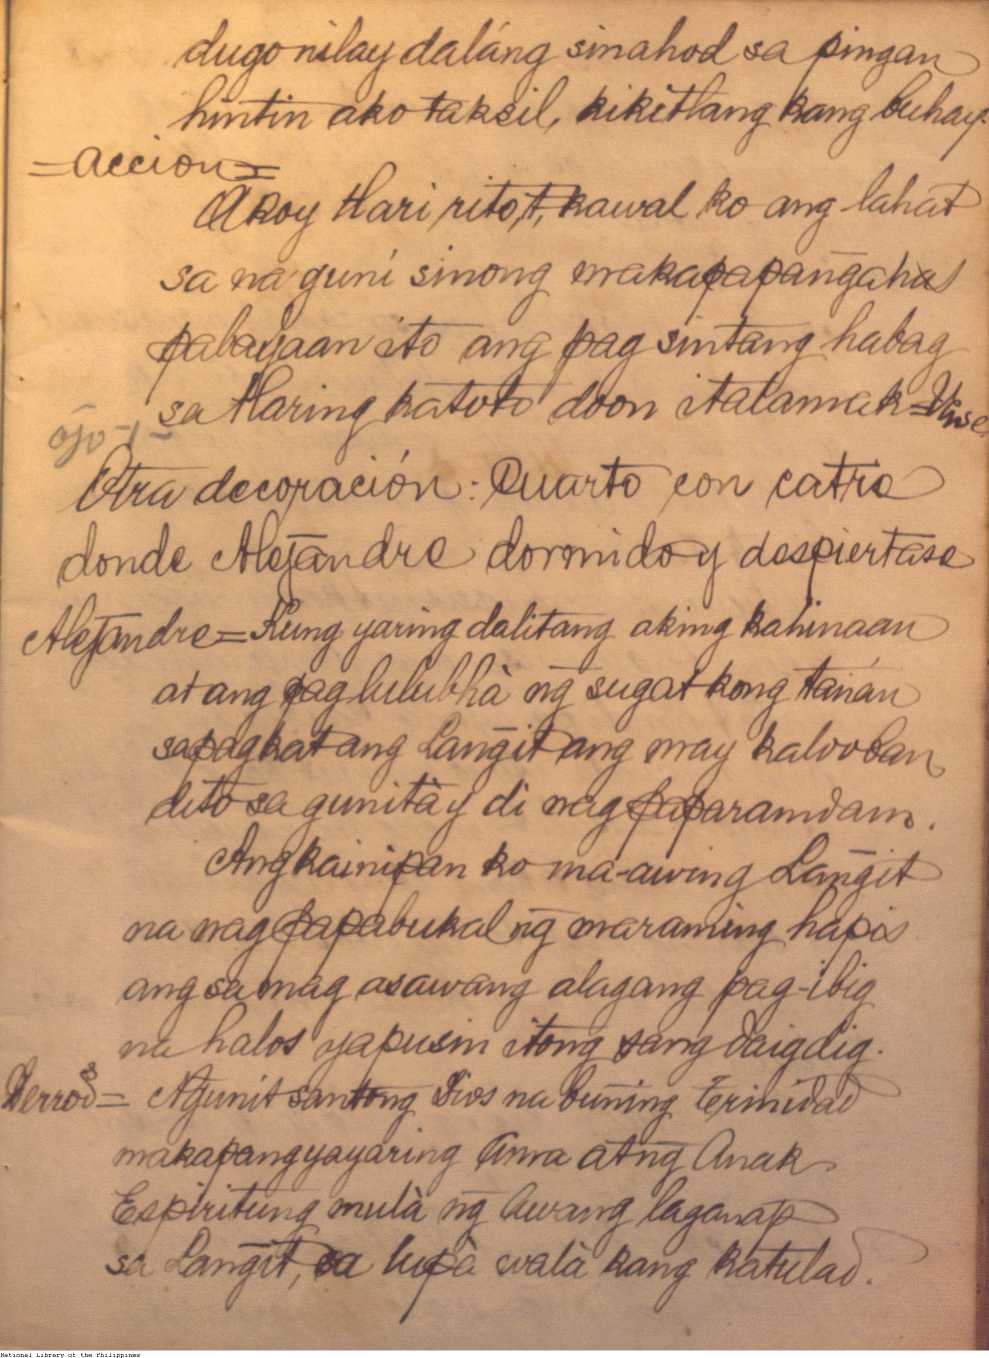 dugo nilay daláng sinahod sa pingan
hintin ako taksil, kikitlang kang buhay.
=Accion=
Akoy Hari rito,t, kawal ko ang lahat
sa na guni sinong makapapang̃ahas
pabayaan ito ang pag sintang habag
sa Haring katoto doon italamak = Vanse
ojo-1-
Otra decoración: Cuarto con catre
donde Alejandre dormido y despiertase
Alejandre = Kung yaring dalitang aking kahinaan
at ang paglulubhà ng̃ sugat kong tánán
sapagkat ang Lang̃it ang may kalooban
dito sa gunitày di nag paparamdam.
Ang kainipan ko ma-awing Lang̃it
na nag papabukal ng̃ maraming hapis
ang sa mag asawang alagang pag-ibig
na halos yapusin itong sang daigdig.
Ng̃unit santong Dios na buning Terinidad
makapangyayaring Ama at ng̃ Anak
Espiritung mulà ng̃ Awang laganap
sa Lang̃it, sa lupà walà kang katulad.